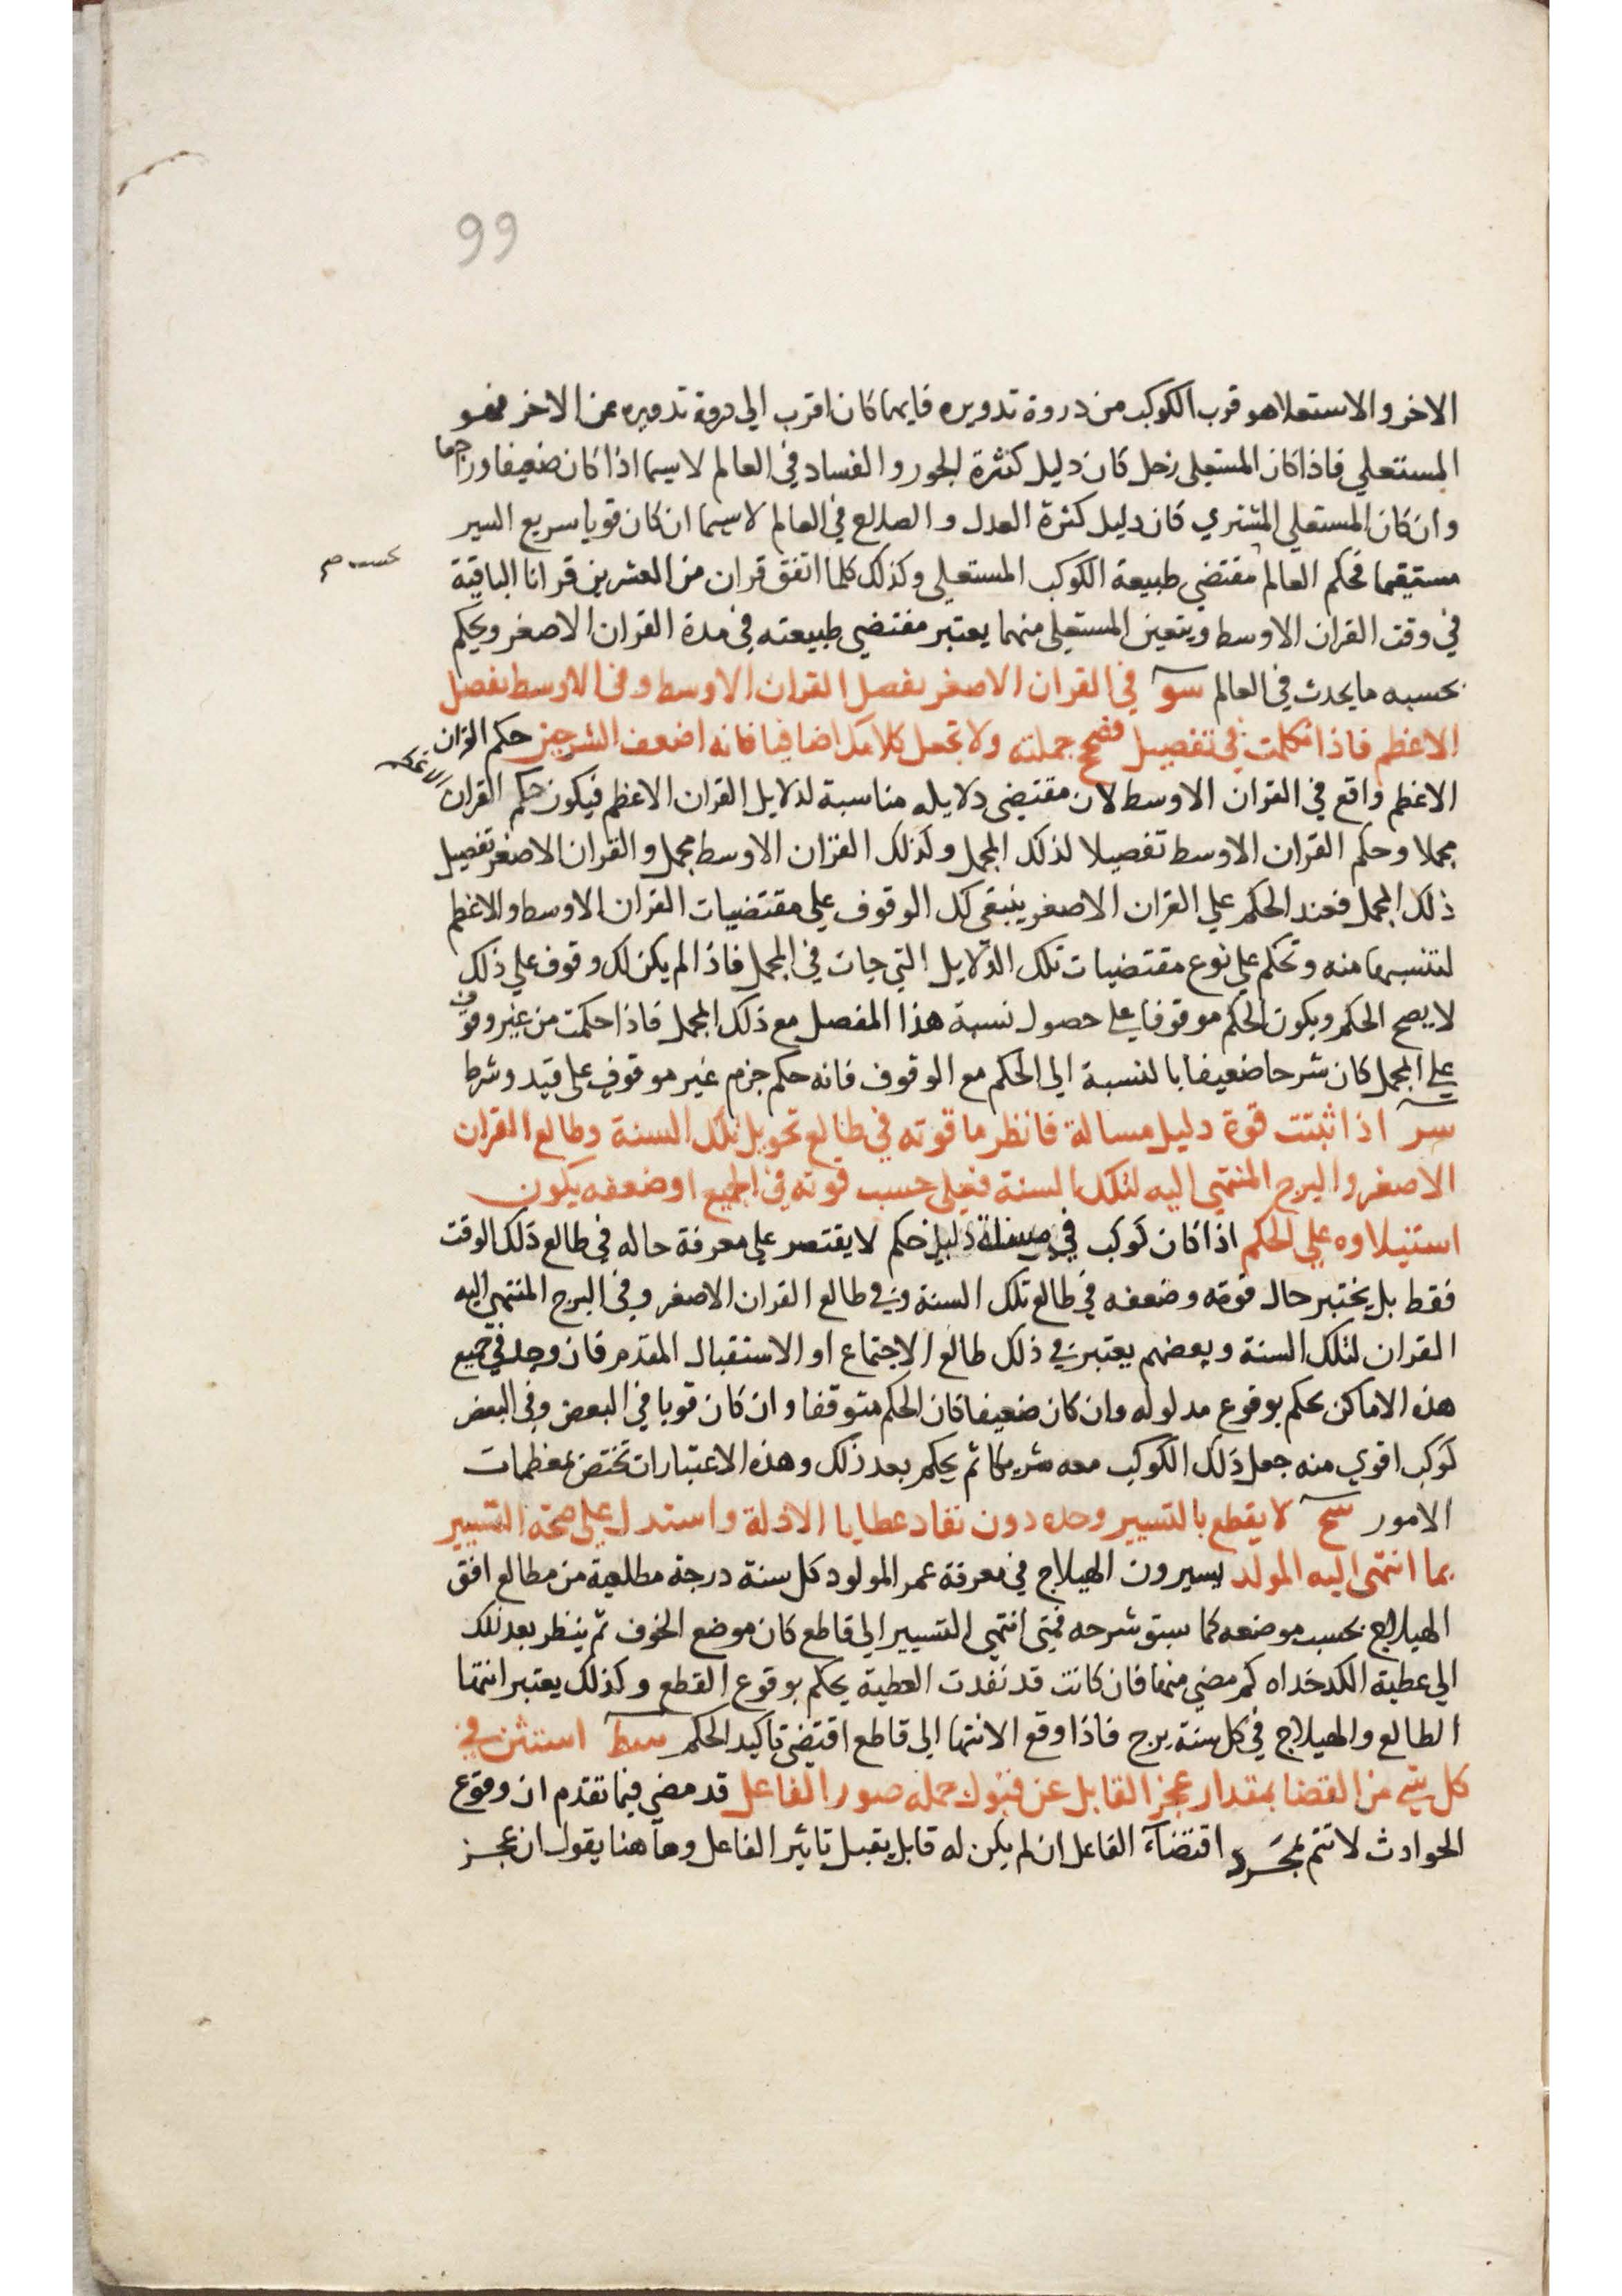 99
الاخر والاستعلاهو قرب الكوكب من دروة تدويره فايهما كان اقرب الي دروة تدويره من الاخر فهو
المستعلي فاذا كان المستعلي زحل كان دليل كثرة الجور والفساد في العالم لاسيما اذا كان ضعيفا وراجعا
وان كان المستعلي المشتري كان دليل كثرة العدل والصلاع في العالم لاسيما ان كان قويا سريع السير
مستقيما فحكم العالم مقتضي طبيعة الكوكب المستعلي وكذلك كلما اتفق قران من العشرين قرانا الباقية
بحسب صح
في وقت القران الاوسط ويتعين المستعلي منهما يعتبر مقتضي طبيعته في مدة القران الاصغر ويحكم
بحسبه ما يحدث في العالم سو في القران الاصغر يفصل القران الاوسط وفي الاوسط يفصل
الاعظم فاذا تكلمت في تفصيل فصحح جملته ولا تجعل كلامك اضافيا فانه اضعف الشرحين حكم القران
الاعظم واقع في القران الاوسط لان مقتضي دلايله مناسبة لدلايل القران الاعظم فيكون حكم القران الاعظم
مجملا وحكم القران الاوسط تفصيلا لذلك المجمل وكذلك القران الاوسط مجمل والقران الاصغر تفصيل
ذلك المجمل فعند الحكم علي القران الاصغر ينبغي لك الوقوف علي مقتضيات القران الاوسط والاعظم
لتنسبهما منه وتحكم علي نوع مقتضيات تلك الدلايل التي جات في المجمل فاذا لم يكن لك وقوف علي ذلك
لا يصح الحكم ويكون الحكم موقوفا علي حصول نسبة هذا المفصل مع ذلك المجمل فاذا حكمت من غير وقوف
علي المجمل كان شرحا ضعيفا بالنسبة الي الحكم مع الوقوف فانه حكم جزم غير موقوف علي قيد وشرط
سر اذا ثبتت قوة دليل مسالة فانظر ما قوته في طالع تحويل تلك السنة وطالع القران
الاصغر والبرج المنتهي اليه لتلك السنة فعلي حسب قوته في الجميع او ضعفه يكون
استيلاوه علي الحكم اذا كان كوكب في مسالة دليل حكم لا يقتصر علي معرفة حاله في طالع ذلك الوقت
فقط بل يختبر حال قوته وضعفه في طالع تلك السنة وفي طالع القران الاصغر وفي البرج المنتهي اليه
القران لتلك السنة وبعضهم يعتبر في ذلك طالع الاجتماع او الاستقبال المقدم فان وجد في جميع
هذه الاماكن يحكم بوقوع مدلوله وان كان ضعيفا كان الحكم متوقفا وان كان قويا في البعض وفي البعض
كوكب اقوي منه جعل ذلك الكوكب معه شريكا ثم يحكم بعد ذلك وهذه الاعتبارات تختص بمعظمات
الامور سح لا يقطع بالتسيير وحده دون نفاد عطايا الادلة واستدل علي صحة التسيير
بما انتهي اليه المولد يسيرون الهيلاج في معرفة عمر المولود كل سنة درجة مطلعية من مطالع افق
الهيلاج بحسب موضعه كما سبق شرحه فمتي انتهي التسيير الي قاطع كان موضع الخوف ثم ينظر بعد ذلك
الي عطية الكدخداه كم مضي منها فان كانت قد نفدت العطية يحكم بوقوع القطع وكذلك يعتبر انتها
الطالع والهيلاج في كل سنة برج فاذا وقع الانتها الي قاطع اقتضي تاكيد الحكم سط استثن في
كل شي من القضا بمقدار عجز القابل عن قبول جملة صور الفاعل قد مضي فيما تقدم ان وقوع
الحوادث لا تتم بمجرد اقتضآء الفاعل ان لم يكن له قابل يقبل تاثير الفاعل وهاهنا يقول ان عجز